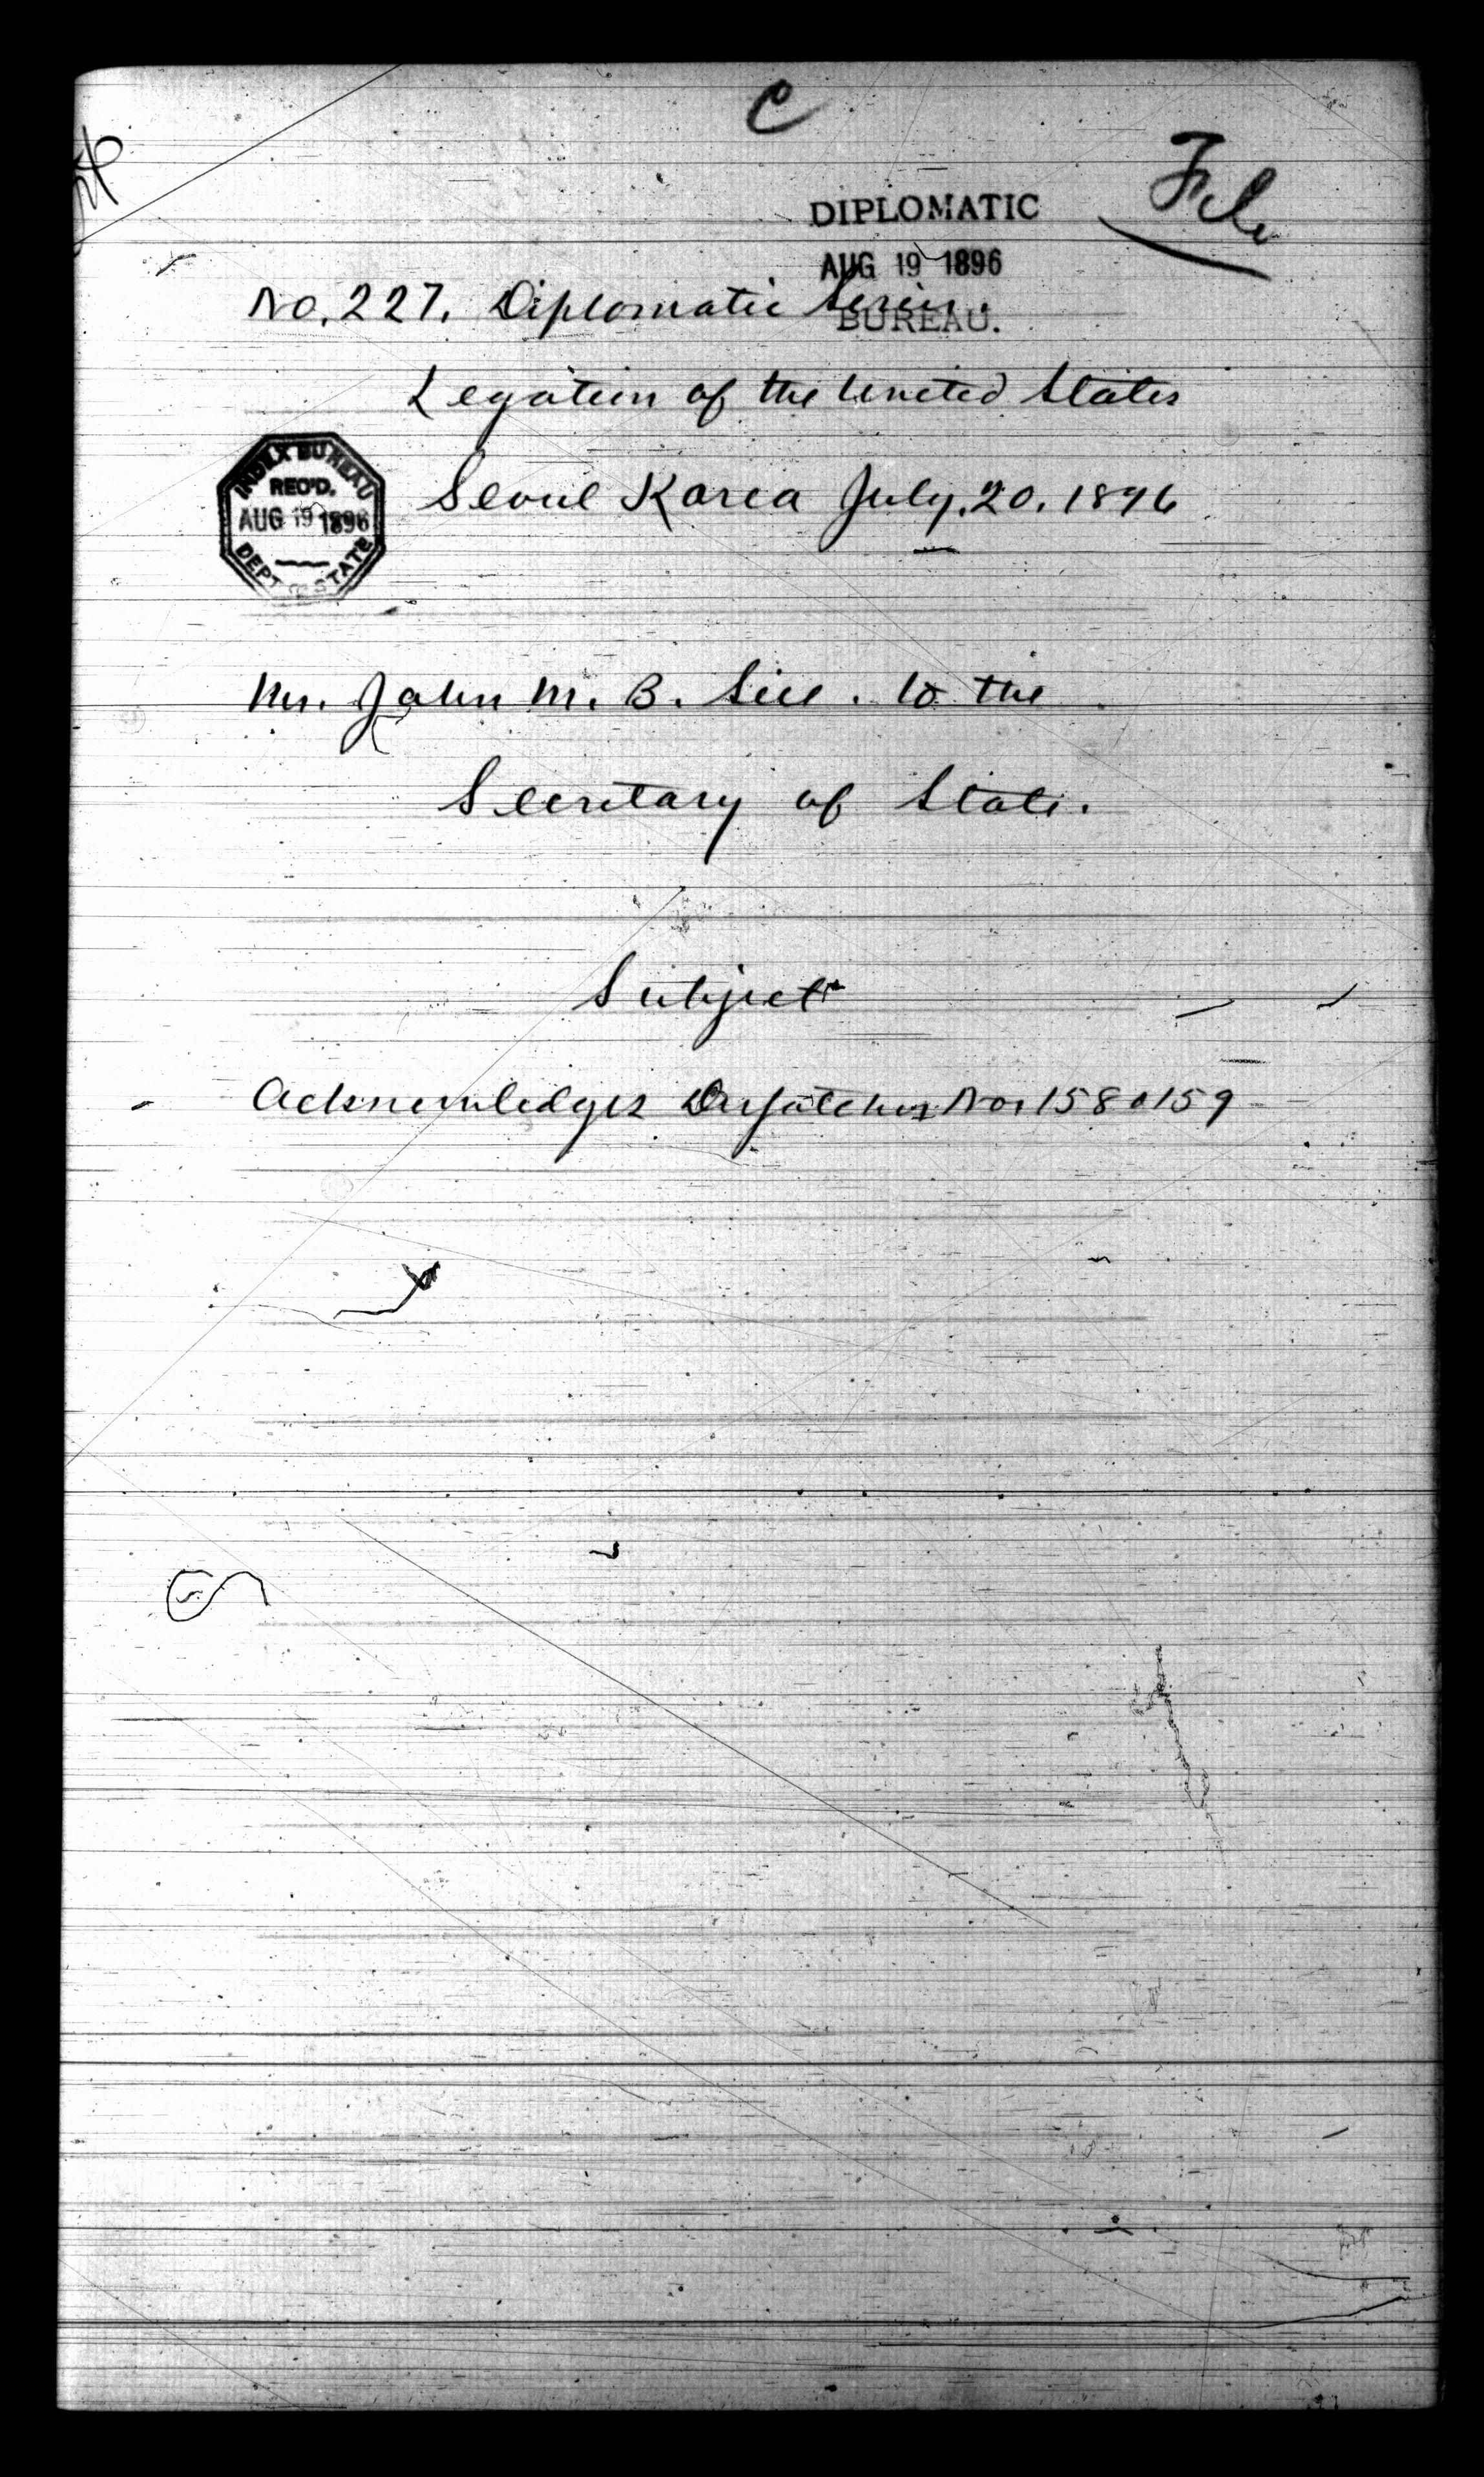 C
File
DIPLOMATIC
AUG 19 1896
BUREAU.
No. 227. Diplomatic Series.
Legation of the United States
INDEX BUREAU
REC'D.
AUG 19 1896
DEPT OF STATE
Seoul Korea July, 20, 1896
Mr. John M. B. Sill. to the
Secretary of State.
Subject
Acknowledges Dispatches Nos 158 & 159